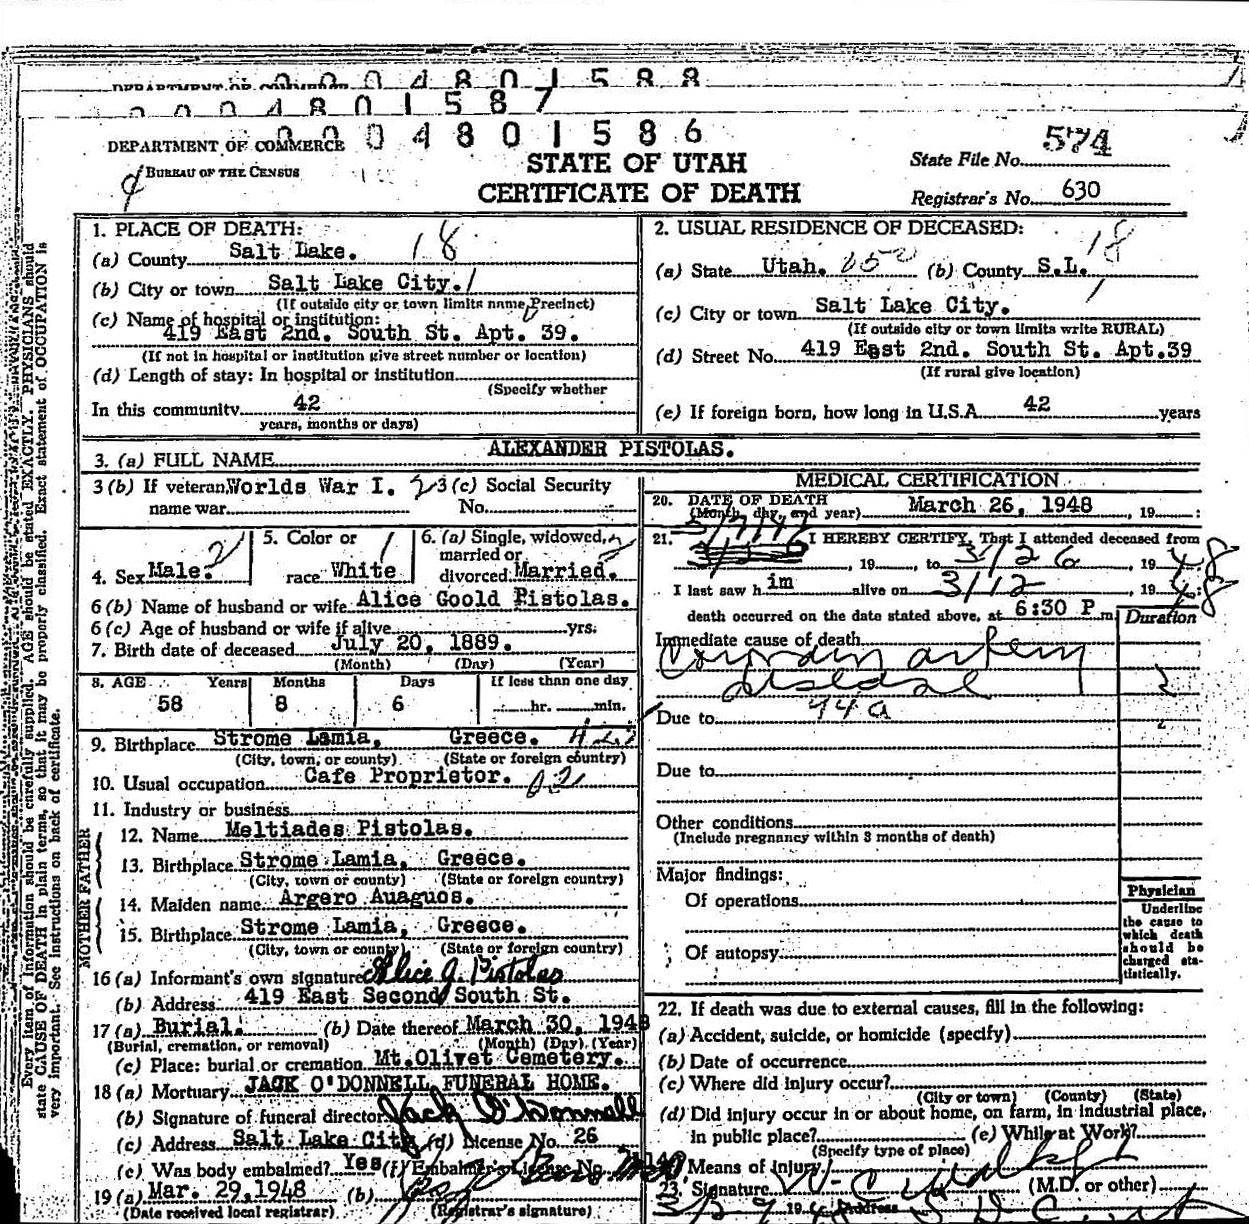 0004801588
DEPARTMENT OF COMMERCE
0004801587
0004801586
DEPARTMENT OF COMMERCE
BUREAU OF THE CENSUS
STATE OF UTAH
CERTIFICATE OF DEATH
State File No. 574
Registrar's No. 630
Every item of information should be carefully supplied. AGE should be stated EXACTLY. PHYSICIANS should
state CAUSE OF DEATH in plain terms, so that it may be properly classified. Exact statement of OCCUPATION is
very important. See instructions on back of certificate.
1. PLACE OF DEATH:
(a) County Salt Lake. 18
(b) City or town Salt Lake City. 1
(If outside city or town limits name Precinct)
(c) Name of hospital or institution:
419 East 2nd. South St. Apt. 39.
(If not in hospital or institution give street number or location)
(d) Length of stay: In hospital or institution
(Specify whether
In this community 42
years, months or days)
2. USUAL RESIDENCE OF DECEASED:
18
(a) State Utah. (b) County S.L.
(c) City or town Salt Lake City.
(If outside city or town limits write RURAL)
(d) Street No. 419 East 2nd. South St. Apt.39
(If rural give location)
(e) If foreign born, how long in U.S.A. 42 years
3. (a) FULL NAME ALEXANDER PISTOLAS.
3 (b) If veteran, Worlds War I. 2
name war
3 (c) Social Security
No.
4. Sex Male. 2
5. Color or
race White 1
6. (a) Single, widowed,
married or
divorced Married.
6 (b) Name of husband or wife Alice Goold Pistolas.
6 (c) Age of husband or wife if alive yrs.
7. Birth date of deceased July 20, 1889.
(Month) (Day) (Year)
8. AGE Years Months Days If less than one day
58 8 6 hr. min.
9. Birthplace Strome Lamia, Greece.
(City, town, or county) (State or foreign country)
10. Usual occupation Cafe Proprietor.
11. Industry or business
FATHER
12. Name Meltiades Pistolas.
13. Birthplace Strome Lamia, Greece.
(City, town or county) (State or foreign country)
MOTHER
14. Maiden name Argero Auaguos.
15. Birthplace Strome Lamia, Greece.
(City, town or county) (State or foreign country)
16 (a) Informant's own signature Alice G. Pistolas
(b) Address 419 East Second South St.
17 (a) Burial. (b) Date thereof March 30, 1948
(Burial, cremation, or removal) (Month) (Day) (Year)
(c) Place: burial or cremation Mt.Olivet Cemetery.
18 (a) Mortuary JACK O'DONNELL FUNERAL HOME.
(b) Signature of funeral director Jack O'Donnell
(c) Address Salt Lake City (d) License No. 26
(e) Was body embalmed? Yes (f) Embalmer's License No.
19 (a) Mar. 29,1948 (b)
(Date received local registrar) (Registrar's signature)
MEDICAL CERTIFICATION
20. DATE OF DEATH
(Month, day, and year) March 26, 1948 , 19 :
21. I HEREBY CERTIFY, That I attended deceased from
, 19 , to 3/26 19 48
I last saw h im alive on 3/12 19 48
death occurred on the date stated above, at 6:30 P m.
Duration
Immediate cause of death
Coronary artery
disease 2
Due to 94a
Due to
Other conditions
(Include pregnancy within 3 months of death)
Major findings:
Of operations
Of autopsy
Physician
Underline
the cause to
which death
should be
charged sta-
tistically.
22. If death was due to external causes, fill in the following:
(a) Accident, suicide, or homicide (specify)
(b) Date of occurrence
(c) Where did injury occur?
(City or town) (County) (State)
(d) Did injury occur in or about home, on farm, in industrial place,
in public place? (e) While at Work?
(Specify type of place)
Means of injury
23. Signature (M.D. or other)
Address